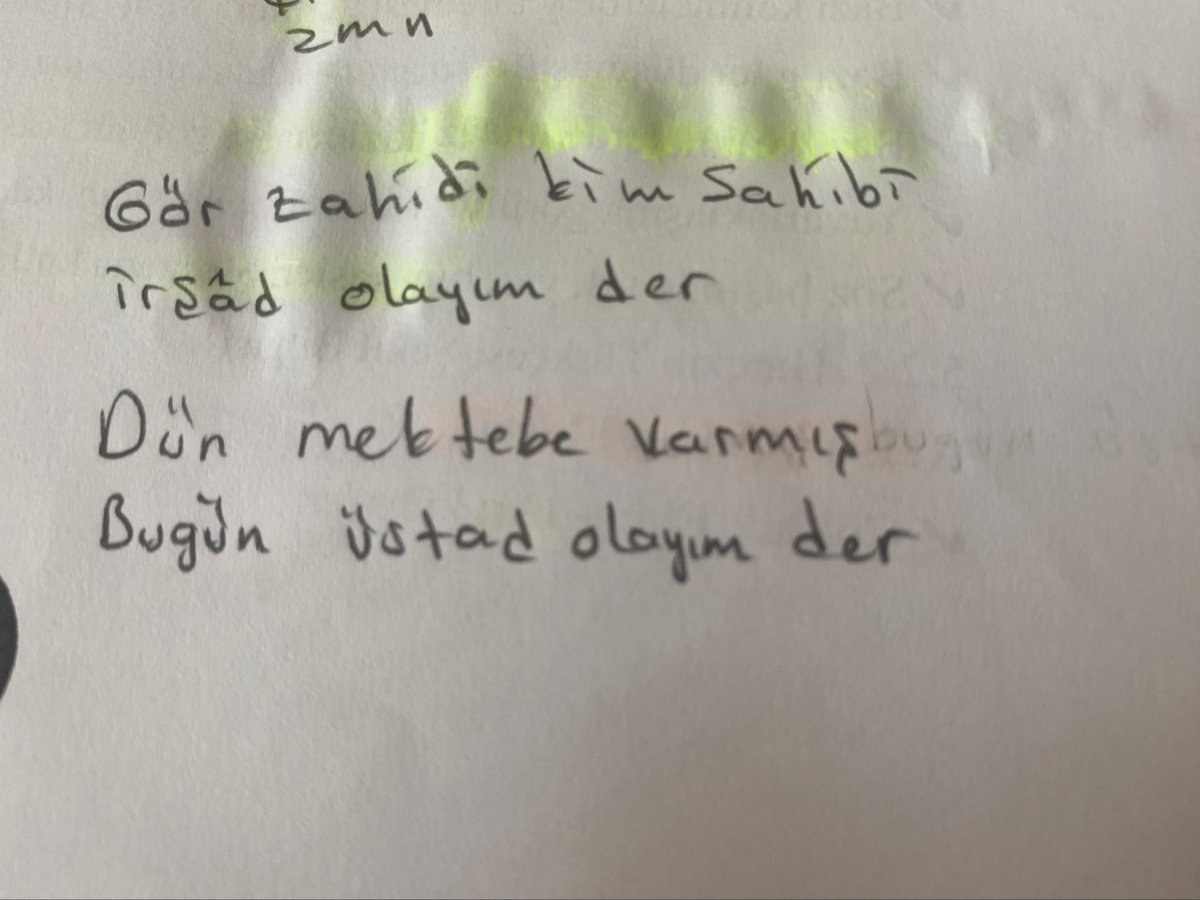 zmn
Gör zahidi kim sahibi
irşâd olayım der
Dün mektebe varmış
Bugün üstad olayım der